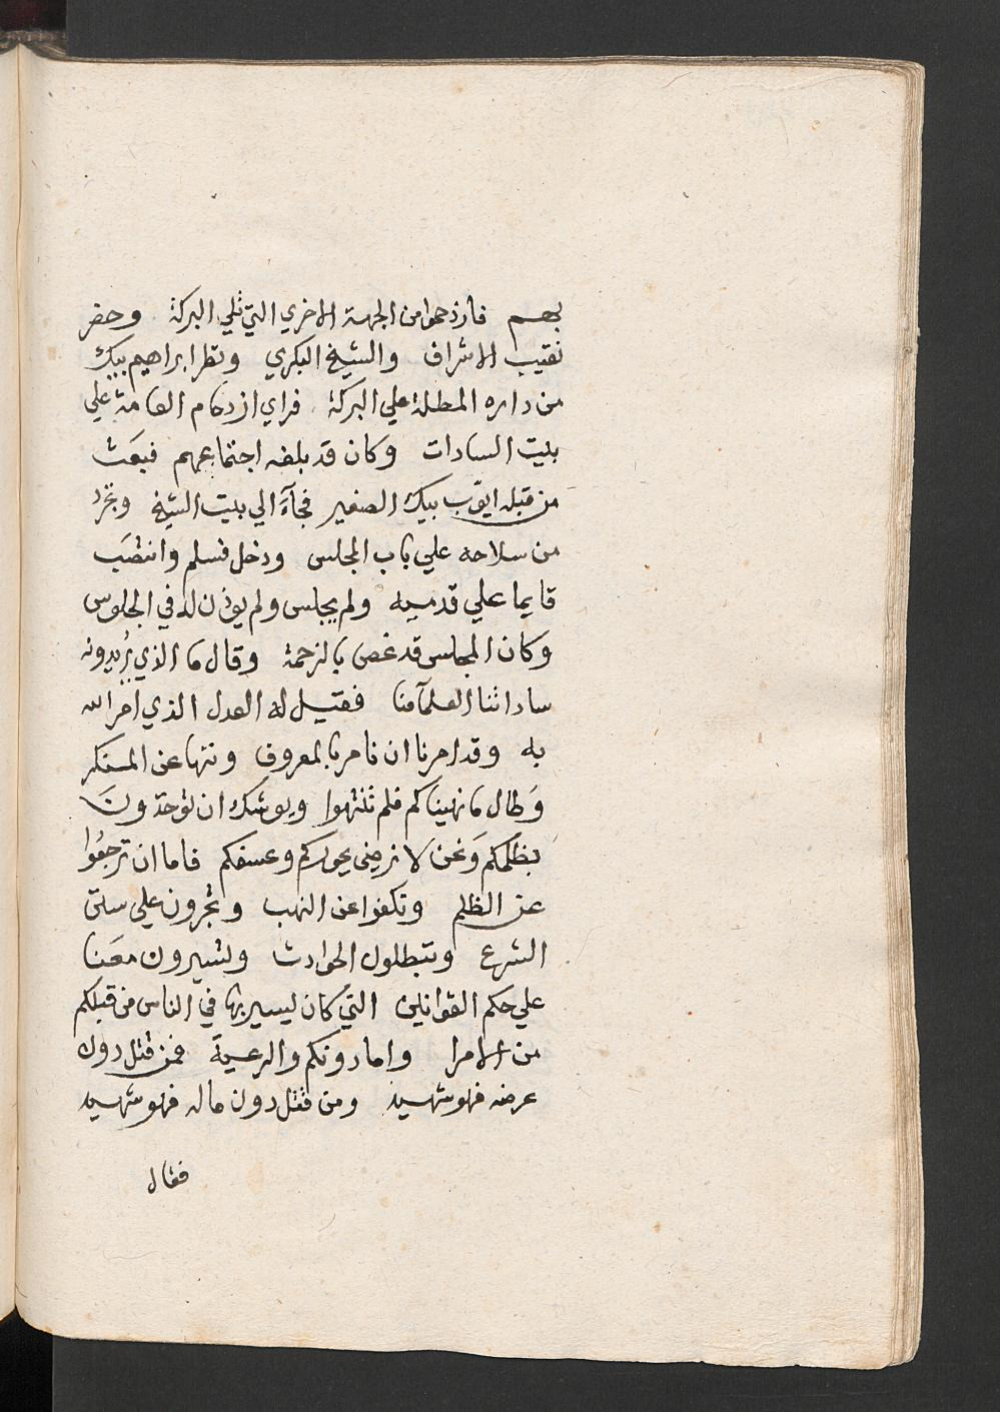 بهم فازدحموا من الجهة الاخري التي تلي البركة وحضر
نقيب الاشراف والشيخ البكري ونظر ابراهيم بيك
من داره المطلة علي البركة فراي ازدحام العامة علي
بيت السادات وكان قد بلغه اجتماعهم فبعَث
من قبله ايوّب بيك الصغير فجآءَ الي بيت الشيخ وتجرد
من سلاحه علي باب المجلس ودخل فسلم وانتصَب
قايما علي قدميه ولم يجلس ولم يوذن له في الجلوس
وكان المجلس قد غص بالزحمة وقال ما الذي تُريدونه
ساداتنا العلمآ منا فقيل له العدل الذي امر الله
به وقد امرنا ان نامر بالمعروف وننها عن المنكر
وَطال ما نهيناكم فلم تنتهوا ويوشك ان توخذونَ
بظلمكم وَنحن لا نرضي بجوركم وعسفكم فاما ان ترجعُوا
عن الظلم وتكفوا عن النهب وتجرون علي سنن
الشرع وتبطلون الحوادث وتسيرون معَنا
علي حكم القوانين التي كان يسير بها في الناس من قبلكم
من الامرا واما دونكم والرعية فمن قتل دون
عرضه فهو شهيد ومن قتل دون ماله فهو شهيد
فقال